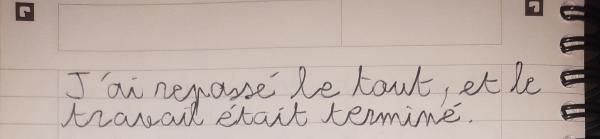 J'ai repassé le tout, et le
travail était terminé.